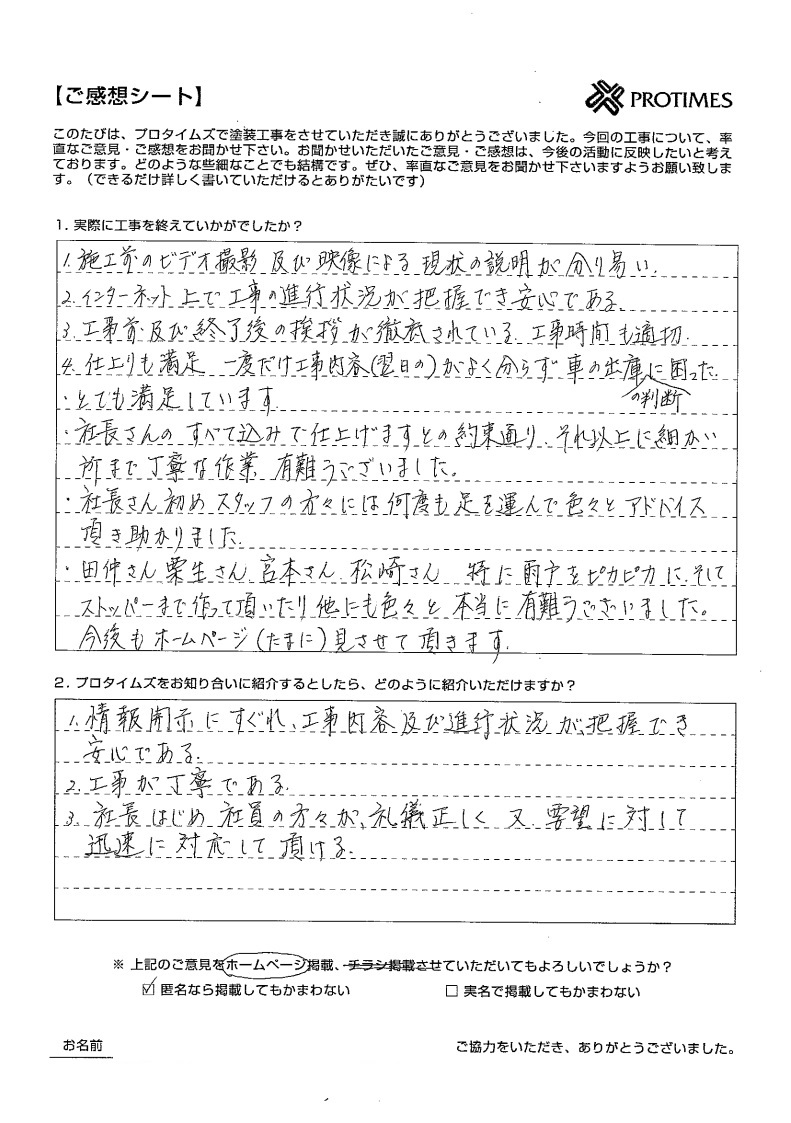 【ご感想シート】
PROTIMES
このたびは、プロタイムズで塗装工事をさせていただき誠にありがとうございました。今回の工事について、率
直なご意見・ご感想をお聞かせ下さい。お聞かせいただいたご意見・ご感想は、今後の活動に反映したいと考え
ております。どのような些細なことでも結構です。ぜひ、率直なご意見をお聞かせ下さいますようお願い致しま
す。（できるだけ詳しく書いていただけるとありがたいです）
1. 実際に工事を終えていかがでしたか？
1. 施工前のビデオ撮影 及び 映像による 現状の説明が 分り易い.
2. インターネット上で工事の進行状況が把握でき安心である.
3. 工事前及び終了後の挨拶が徹底されている. 工事時間も適切.
4. 仕上りも満足 一度だけ工事内容(翌日の)がよく分らず 車の出庫に困った.
の判断
・とても満足しています.
・社長さんの すべて込みで仕上げますとの約束通り、それ以上に細かい
所まで丁寧な作業 有難うございました。
・社長さん初めスタッフの方々には何度も足を運んで色々とアドバイス
頂き助かりました.
・田仲さん 粟生さん 宮本さん 松崎さん 特に雨戸をピカピカに、そして
ストッパーまで作って頂いたり他にも色々と 本当に有難うございました。
今後もホームページ(たまに)見させて頂きます.
2. プロタイムズをお知り合いに紹介するとしたら、どのように紹介いただけますか？
1. 情報開示にすぐれ、工事内容及び進行状況が、把握でき
安心である.
2. 工事が丁寧である.
3. 社長はじめ 社員の方々が、礼儀正しく 又 要望に対して
迅速に対応して頂ける.
※ 上記のご意見をホームページ掲載、チラシ掲載させていただいてもよろしいでしょうか？
☑ 匿名なら掲載してもかまわない
□ 実名で掲載してもかまわない
お名前
ご協力をいただき、ありがとうございました。